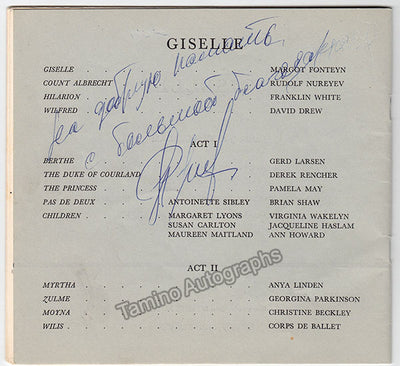 GISELLE
GISELLE MARGOT FONTEYN
COUNT ALBRECHT RUDOLF NUREYEV
HILARION FRANKLIN WHITE
WILFRED DAVID DREW
на добрую память
с большой благодарностью
ACT I
BERTHE GERD LARSEN
THE DUKE OF COURLAND DEREK RENCHER
THE PRINCESS PAMELA MAY
PAS DE DEUX ANTOINETTE SIBLEY BRIAN SHAW
CHILDREN MARGARET LYONS VIRGINIA WAKELYN
SUSAN CARLTON JACQUELINE HASLAM
MAUREEN MAITLAND ANN HOWARD
ACT II
Tamino Autographs
MYRTHA ANYA LINDEN
ZULME GEORGINA PARKINSON
MOYNA CHRISTINE BECKLEY
WILIS CORPS DE BALLET